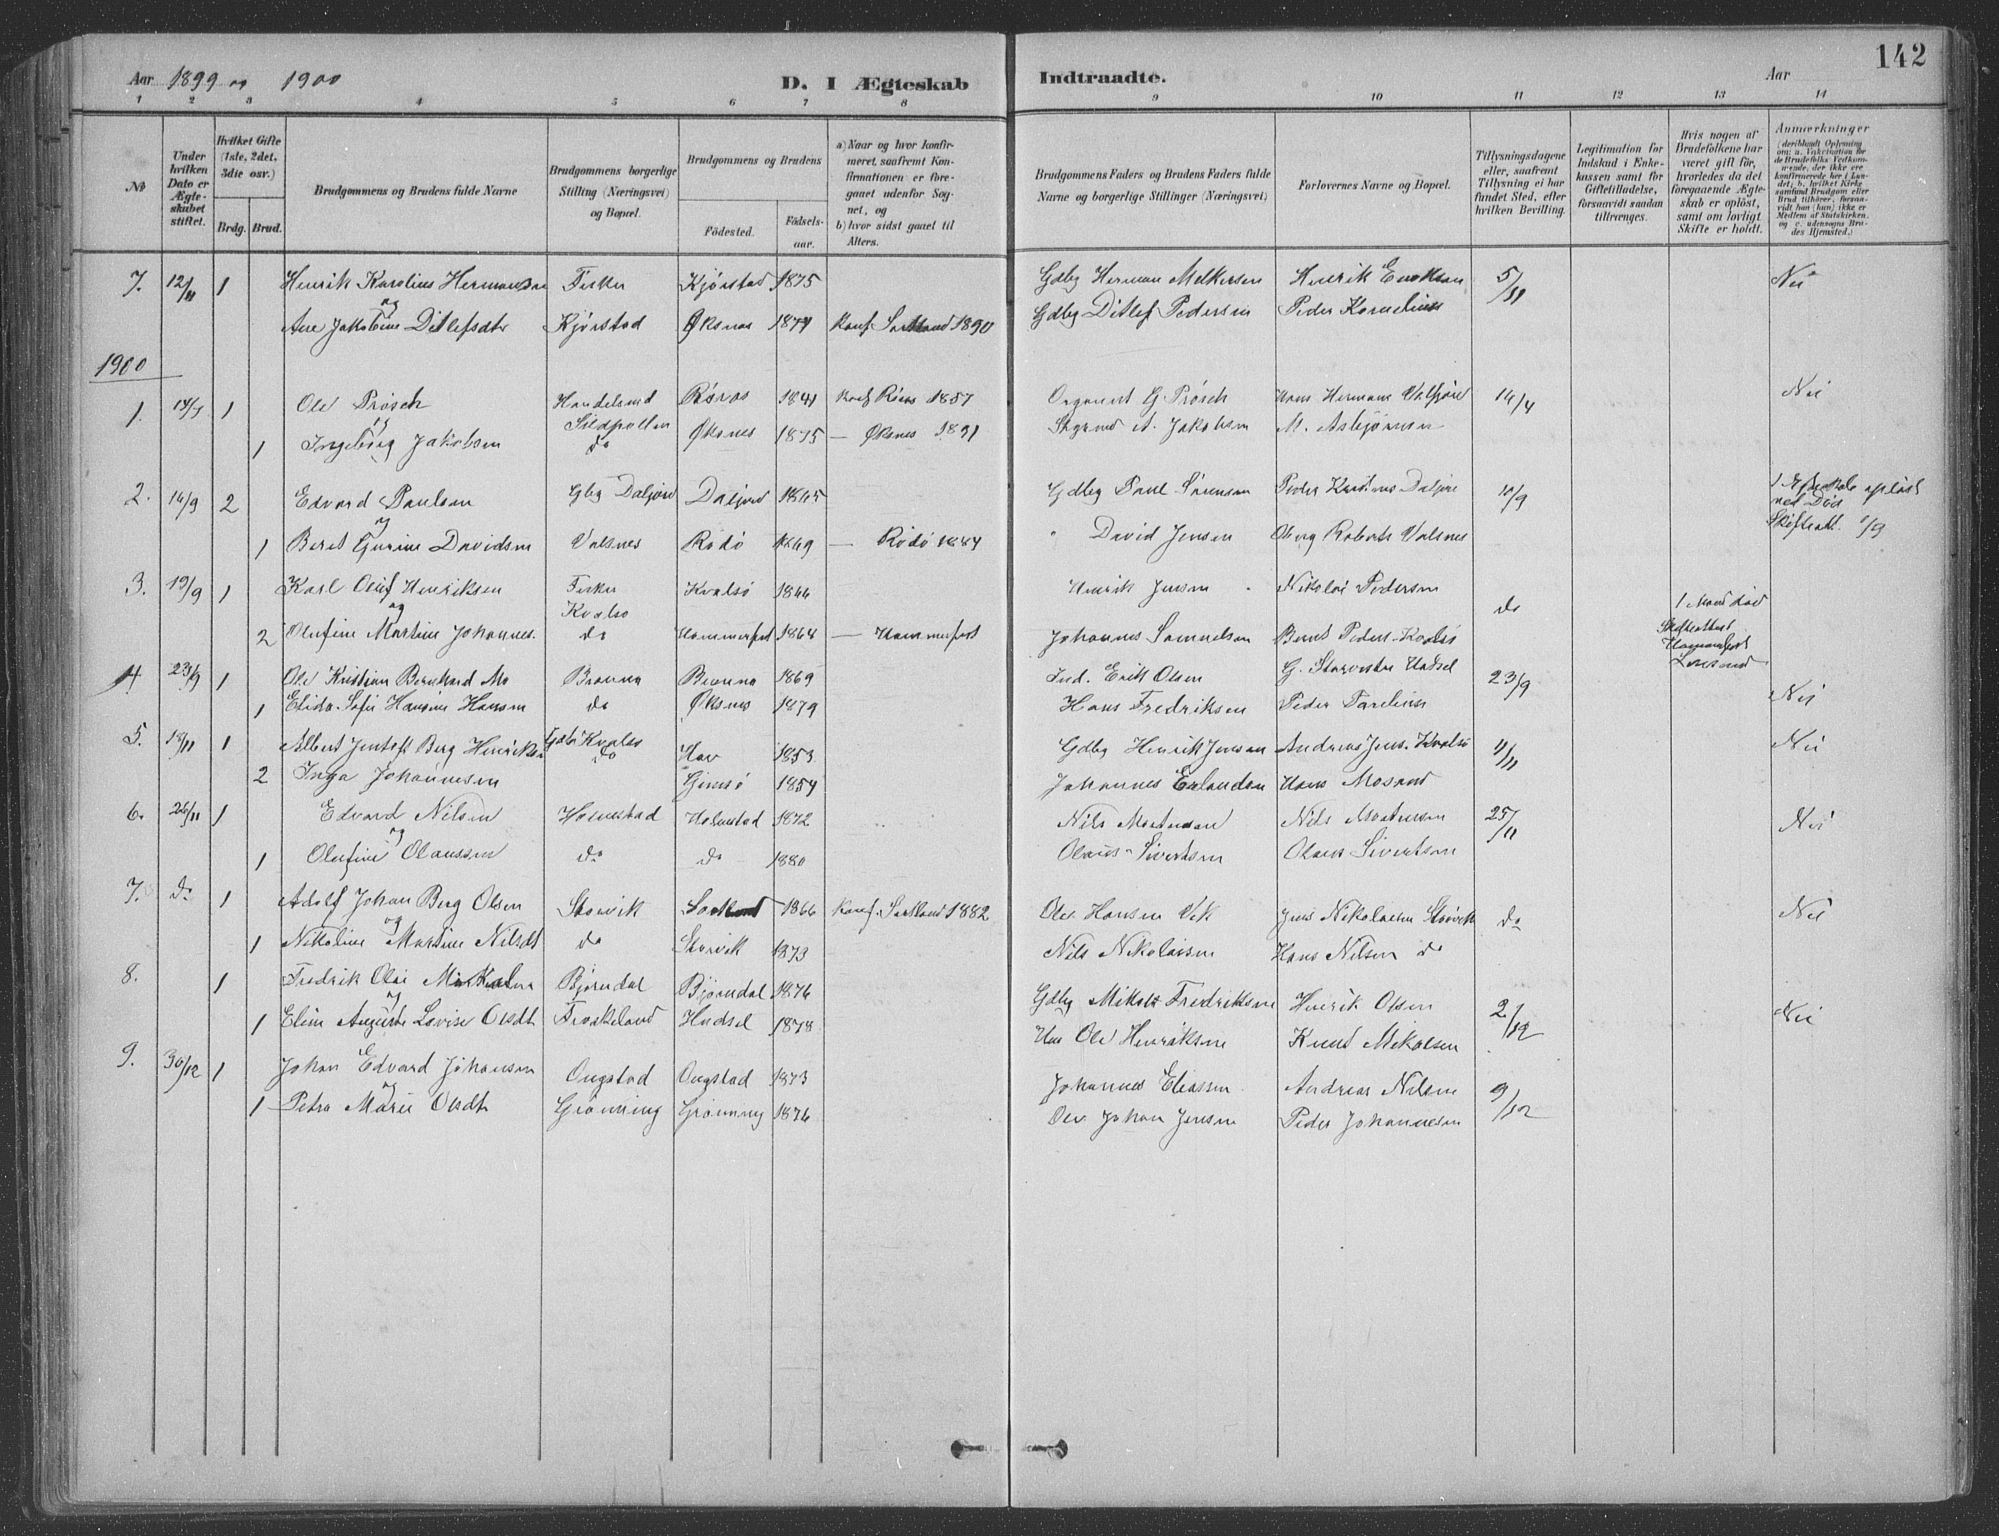 142
Aar 1899 og 1900
D. I Ægteskab
Indtraadte.
Aar
1 2 3 4 5 6 7 8
9 10 11 12 13 14
No
Under hvilken Dato er Ægteskabet stiftet.
Hvilket Gifte (1ste, 2det, 3die osv.)
Brdg. Brud.
Brudgommens og Brudens fulde Navne
Brudgommens borgerlige Stilling (Næringsvei) og Bopæl.
Brudgommens og Brudens
Fødested.
Fødselsaar.
a) Naar og hvor konfirmeret, saafremt Konfirmationen er foregaaet udenfor Sognet, og
b) hvor sidst gaaet til Alters.
Brudgommens Faders og Brudens Faders fulde Navne og borgerlige Stillinger (Næringsvei)
Forlovernes Navne og Bopæl.
Tillysningsdagene eller, saafremt Tillysning ei har fundet Sted, efter hvilken Bevilling.
Legitimation for Indskud i Enkekassen samt for Giftetilladelse, forsaavidt saadan tiltrænges.
Hvis nogen af Brudefolkene har været gift før, hvorledes da det foregaaende Ægteskab er opløst, samt om lovligt Skifte er holdt.
Anmærkninger
7. 12/11 1 Henrik Karolius Hermansen Fisker Kjørstad 1875 Gdbg Herman Melkersen Henrik 5/11 Nei
og
Ane Jakobine Ditlefsdtr Kjørstad Øksnes 1874 Konf Sortland 1890 Gdbg Ditlef Pedersen Peder Kornelius
1900
1. 1 Ole Prøsch Røros 1841 Konf Røros 1857 G Prøsch Hans Herman 14/4 Nei
og Sildpollen
1 Ingeborg Jakobsen do Øksnes 1875 — Øksnes 1891 A. Jakobsen M. Asbjørnsen
2. 14/9 2 Edvard Paulsen Gbg 1865 Gdbg Paul Sørensen Peder 10/9 1 opløst
og ved Død
1 Beret Gurine Davidsen Valsnes Rødø 1869 — Rødø 1884 " David Jensen Valsnes
3. 19/9 1 Karl Oluf Henriksen Fisker Kvalsø 1866 Henrik Jensen Nikolai Pedersen do
og Kvalsø
2 Olufine Martine Johannes. do Hammerfest 1864 — Hammerfest Johannes Samuelsen Bernt Peders. Kvalsø
4 23/9 1 Ole Kristian Bernhard Mo 1869 Ind. Erik Olsen Hadsel 23/9
1 Elida Sofie Hansine Hansen do Øksnes 1879 Hans Fredriksen Peder Nei
5. 18/11 1 Albert Jentoft Berg Henriksen Gdbr Kvalsø 1853 Gdbg Henrik Jensen Andreas Jens. Kvalsø 11/11 Nei
2 Inga Johannesen do Gimsø 1854 Johannes Erlandsen Hans
6. 26/11 1 Edvard Nilsen Holmstad Holmstad 1872 Nils Mortensen Nils Mortensen 25/11 Nei
og
1 Olufine Olaussen do do 1880 Olaus Sivertsen Olaus Sivertsen
7. do 1 Adolf Johan Berg Olsen Storvik Sortland 1866 Konf. Sortland 1882 Ole Hansen Vik Jens Nikolaisen Storvik do Nei
og
1 Nikoline Martine Nilsdt do Storvik 1873 Nils Nikolaisen Hans Nilsen do
8. 1 Fredrik Olai Bjørndal Bjørndal 1876 Gdbg Mikal Fredriksen Henrik Olsen 2/12 Nei
og
1 Elen Auguste Lovise Olsdt Frøskeland Hadsel 1878 Ole Henriksen Knut Mikalsen
9. 30/12 1 Johan Edvard Johansen Ongstad Ongstad 1873 Johannes Eliassen Andreas Nilsen 9/12
og
1 Petra Marie Olsdt Grønning Grønning 1876 Ole Johan Jensen Peder Johannesen